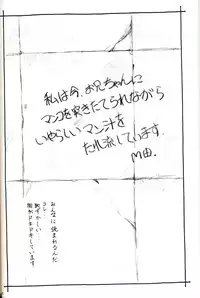 私は今、お兄ちゃんに
マンコを突きたてられながら
いやらしいマン汁を
たれ流しています.
M田.
みんなに読まれるんだ
コレ…
恥ずかしい…
ドキドキしています